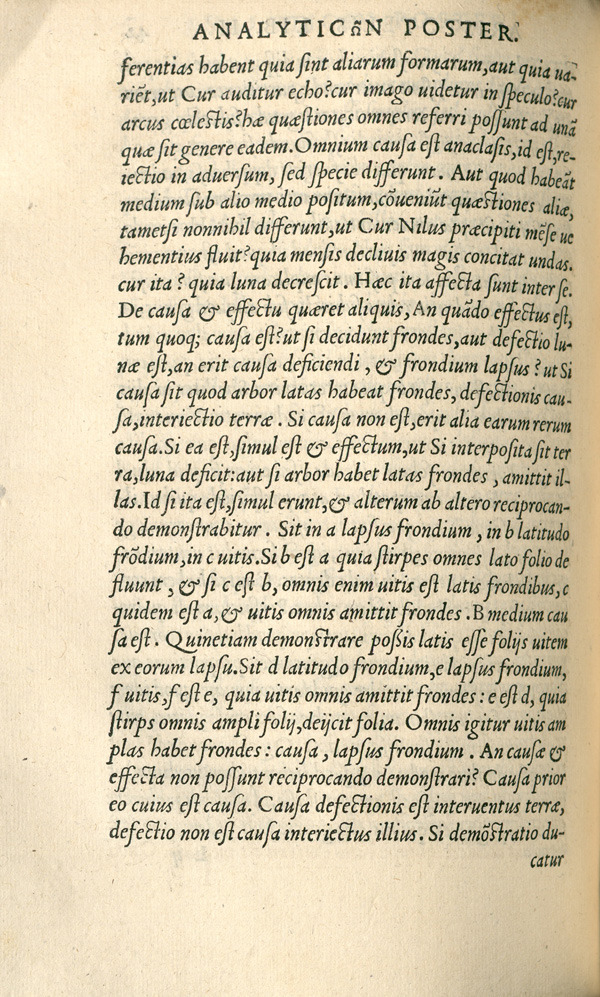 ANALYTICωN POSTER.
ferentias habent quia ſint aliarum formarum,aut quia ua-
riēt,ut Cur auditur echo?cur imago uidetur in ſpeculo?cur
arcus cœleſtis?hæ quæſtiones omnes referri poſſunt ad unā
quæ ſit genere eadem.Omnium cauſa eſt anaclaſis,id eſt,re-
iectio in aduerſum, ſed ſpecie differunt. Aut quod habeāt
medium ſub alio medio poſitum,cōueniūt quæſtiones aliæ,
tametſi nonnihil differunt,ut Cur Nilus præcipiti mēſe ue
hementius fluit?quia menſis decliuis magis concitat undas.
cur ita ? quia luna decreſcit. Hæc ita affecta ſunt inter ſe.
De cauſa & effectu quæret aliquis,An quādo effectus eſt,
tum quoq; cauſa eſt?ut ſi decidunt frondes,aut defectio lu-
næ eſt,an erit cauſa deficiendi , & frondium lapſus ? ut Si
cauſa ſit quod arbor latas habeat frondes, defectionis cau-
ſa,interiectio terræ . Si cauſa non eſt,erit alia earum rerum
cauſa.Si ea eſt,ſimul eſt & effectum,ut Si interpoſita ſit ter
ra,luna deficit:aut ſi arbor habet latas frondes , amittit il-
las.Id ſi ita eſt,ſimul erunt,& alterum ab altero reciprocan-
do demonſtrabitur . Sit in a lapſus frondium , in b latitudo
frōdium,in c uitis.Si b eſt a quia ſtirpes omnes lato folio de
fluunt , & ſi c eſt b, omnis enim uitis eſt latis frondibus, c
quidem eſt a,& uitis omnis amittit frondes .B medium cau
ſa eſt. Quinetiam demonſtrare poßis latis eſſe folijs uitem
ex eorum lapſu.Sit d latitudo frondium,e lapſus frondium,
f uitis,f eſt e, quia uitis omnis amittit frondes : e eſt d, quia
ſtirps omnis ampli folij,deijcit folia. Omnis igitur uitis am
plas habet frondes : cauſa , lapſus frondium . An cauſæ &
effecta non poſſunt reciprocando demonſtrari? Cauſa prior
eo cuius eſt cauſa. Cauſa defectionis eſt interuentus terræ,
defectio non eſt cauſa interiectus illius. Si demōſtratio du-
catur